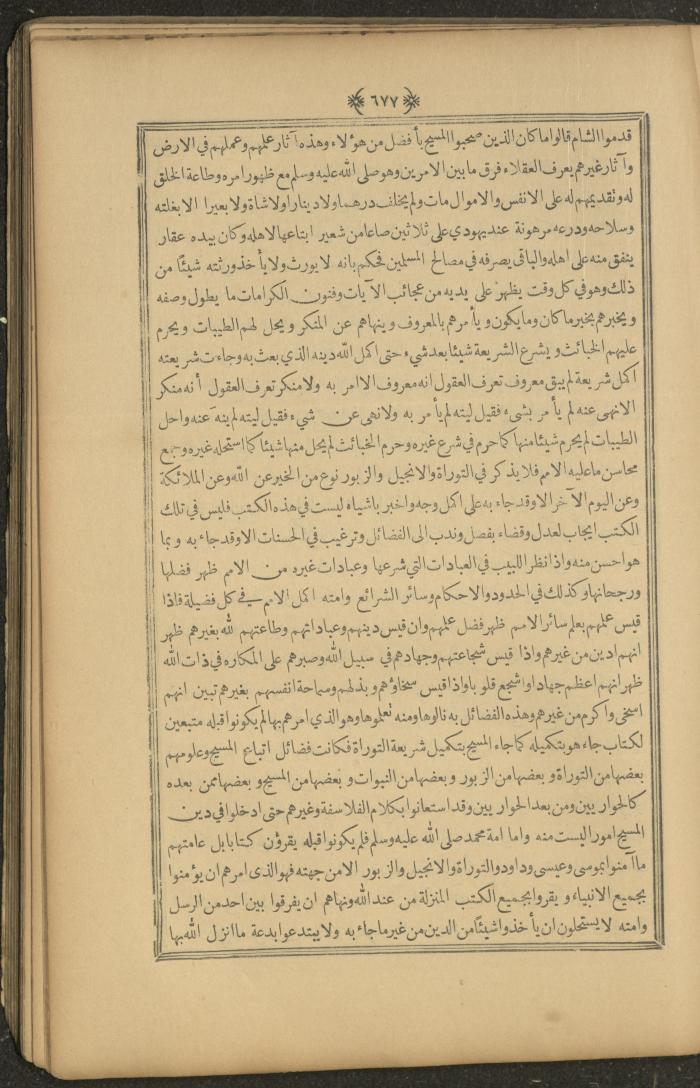 ٦٧٧
قدموا الشام قالوا ما كان الذين صحبوا المسيح بأفضل من هؤلاء وهذه آثار علمهم وعملهم في الارض
وآثار غيرهم يعرف العقلاء فرق ما بين الامرين وهو صلى الله عليه وسلم مع ظهور امره وطاعة الخلق
له وتقديمهم له على الانفس والاموال مات ولم يخلف درهما ولا دينارا ولا شاة ولا بعيرا الا بغلته
وسلاحه ودرعه مرهونة عند يهودي على ثلاثين صاعا من شعير ابتاعها لاهله وكان بيده عقار
ينفق منه على اهله والباقي يصرفه في مصالح المسلمين فحكم بانه لا يورث ولا يأخذ ورثته شيئا من
ذلك وهو في كل وقت يظهر على يديه من عجائب الآيات وفنون الكرامات ما يطول وصفه
ويخبرهم بخبر ما كان وما يكون ويأمرهم بالمعروف وينهاهم عن المنكر ويحل لهم الطيبات ويحرم
عليهم الخبائث ويشرع الشريعة شيئا بعد شيء حتى اكمل الله دينه الذي بعث به وجاءت شريعته
اكمل شريعة لم يبق معروف تعرف العقول انه معروف الا امر به ولا منكر تعرف العقول أنه منكر
الا نهى عنه لم يأمر بشيء فقيل ليته لم يأمر به ولا نهى عن شيء فقيل ليته لم ينه عنه واحل
الطيبات لم يحرم شيئا منها كما حرم في شرع غيره وحرم الخبائث لم يحل منها شيئا كما استحله غيره وجمع
محاسن ما عليه الامم فلا يذكر في التوراة والانجيل والزبور نوع من الخبر عن الله وعن الملائكة
وعن اليوم الآخر الا وقد جاء به على اكمل وجه واخبر باشياء ليست في هذه الكتب فليس في تلك
الكتب ايجاب لعدل وقضاء بفصل وندب الى الفضائل وترغيب في الحسنات الا وقد جاء به وبما
هو احسن منه واذا نظر اللبيب في العبادات التي شرعها وعبادات غيره من الامم ظهر فضلها
ورجحانها وكذلك في الحدود والاحكام وسائر الشرائع وامته اكمل الامم في كل فضيلة فاذا
قيس علمهم بعلم سائر الامم ظهر فضل علمهم وان قيس دينهم وعباداتهم وطاعتهم لله بغيرهم ظهر
انهم ادين من غيرهم واذا قيس شجاعتهم وجهادهم في سبيل الله وصبرهم على المكاره في ذات الله
ظهر انهم اعظم جهادا واشجع قلوبا واذا قيس سخاؤهم وبذلهم وسماحة انفسهم بغيرهم تبين انهم
اسخى واكرم من غيرهم وهذه الفضائل به نالوها ومنه تعلموها وهو الذي امرهم بها لم يكونوا قبله متبعين
لكتاب جاء هو بتكميله كما جاء المسيح بتكميل شريعة التوراة فكانت فضائل اتباع المسيح وعلومهم
بعضها من التوراة وبعضها من الزبور وبعضها من النبوات وبعضها من المسيح وبعضها ممن بعده
كالحواريين ومن بعد الحواريين وقد استعانوا بكلام الفلاسفة وغيرهم حتى ادخلوا في دين
المسيح امورا ليست منه واما امة محمد صلى الله عليه وسلم فلم يكونوا قبله يقرؤن كتابا بل عامتهم
ما آمنوا بموسى وعيسى وداود والتوراة والانجيل والزبور الا من جهته فهو الذي امرهم ان يؤمنوا
بجميع الانبياء ويقروا بجميع الكتب المنزلة من عند الله ونهاهم ان يفرقوا بين احد من الرسل
وامته لا يستحلون ان يأخذوا شيئا من الدين من غير ما جاء به ولا يبتدعوا بدعة ما انزل الله بها